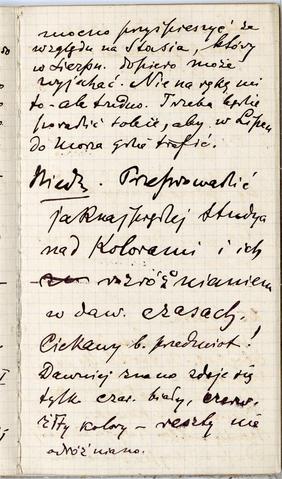 mocno przyśpieszyć ze
względu na Stasia, który
w Sierpn. dopiero może
wyjechać. Nie na rękę mi
to - ale trudno. Trzeba będzie
poradzić sobie, aby w Lipcu
do morza gdzie trafić.
Niedz. Przeprowadzić
jaknajprędzej studya
nad Kolorami i ich
rozróżnianiem
w daw. czasach.
Ciekawy b. przedmiot!
Dawniej znano zdaje się
tylko czar. biały, czerw.
żółty kolory - reszty nie
odróżniano.